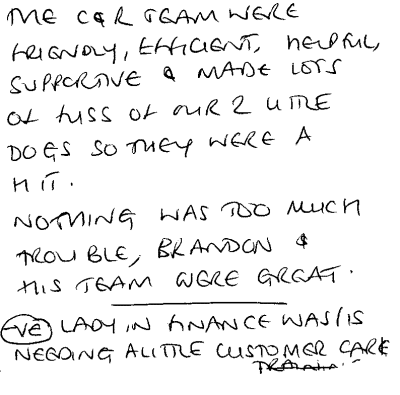 THE C&R TEAM WERE
FRIENDLY, EFFICIENT, HELPFUL,
SUPPORTIVE & MADE LOTS
OF FUSS OF OUR 2 LITTLE
DOGS SO THEY WERE A
HIT.
NOTHING WAS TOO MUCH
TROUBLE, BRANDON &
HIS TEAM WERE GREAT.
-VE LADY IN FINANCE WAS/IS
NEEDING A LITTLE CUSTOMER CARE